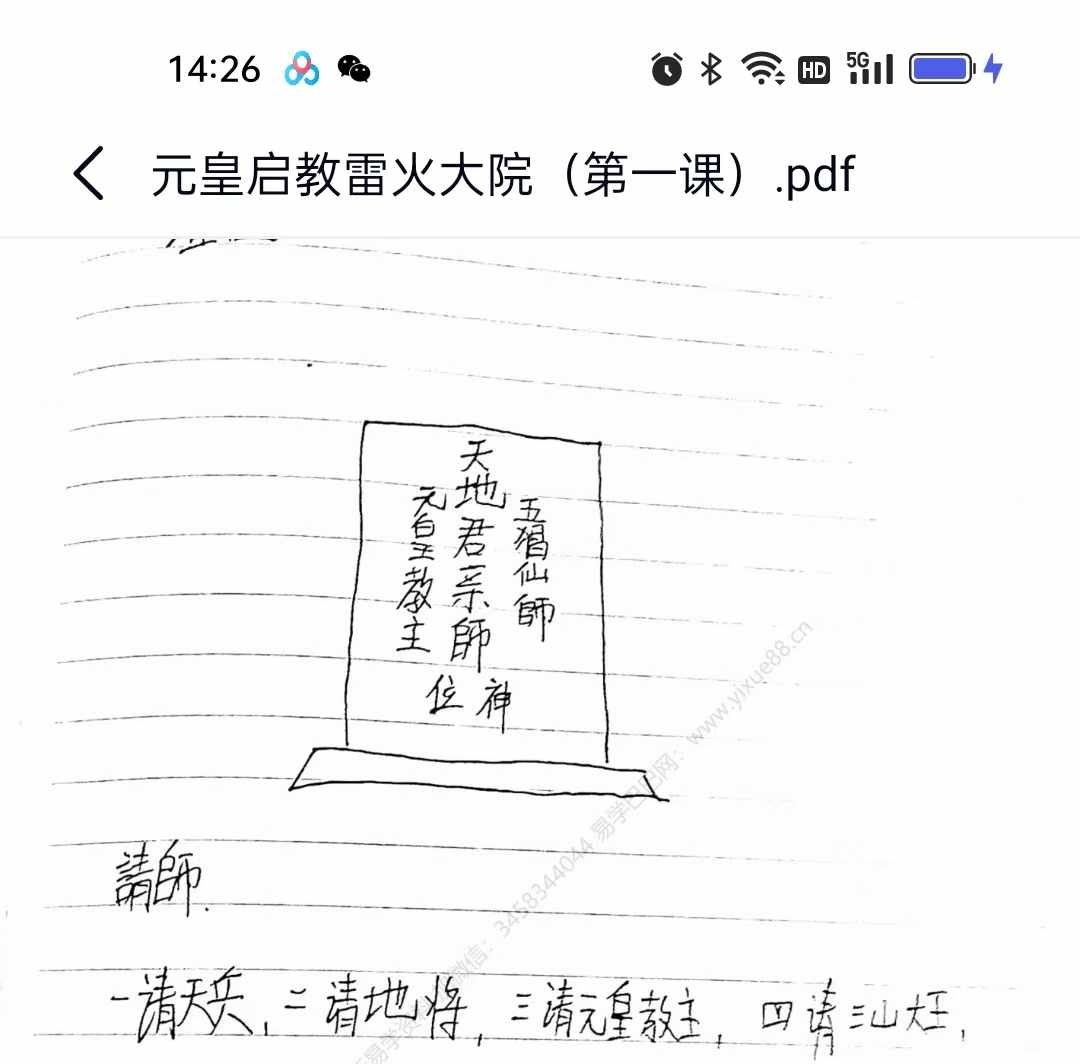 14:26 HD 5G
元皇启教雷火大院（第一课）.pdf
五猖仙師
天地君亲師
元皇教主
神位
請師.
一请天兵，二请地将，三请元皇教主，四请三山大王，
微信：3458344044 易学巴巴网：www.yixue88.cn